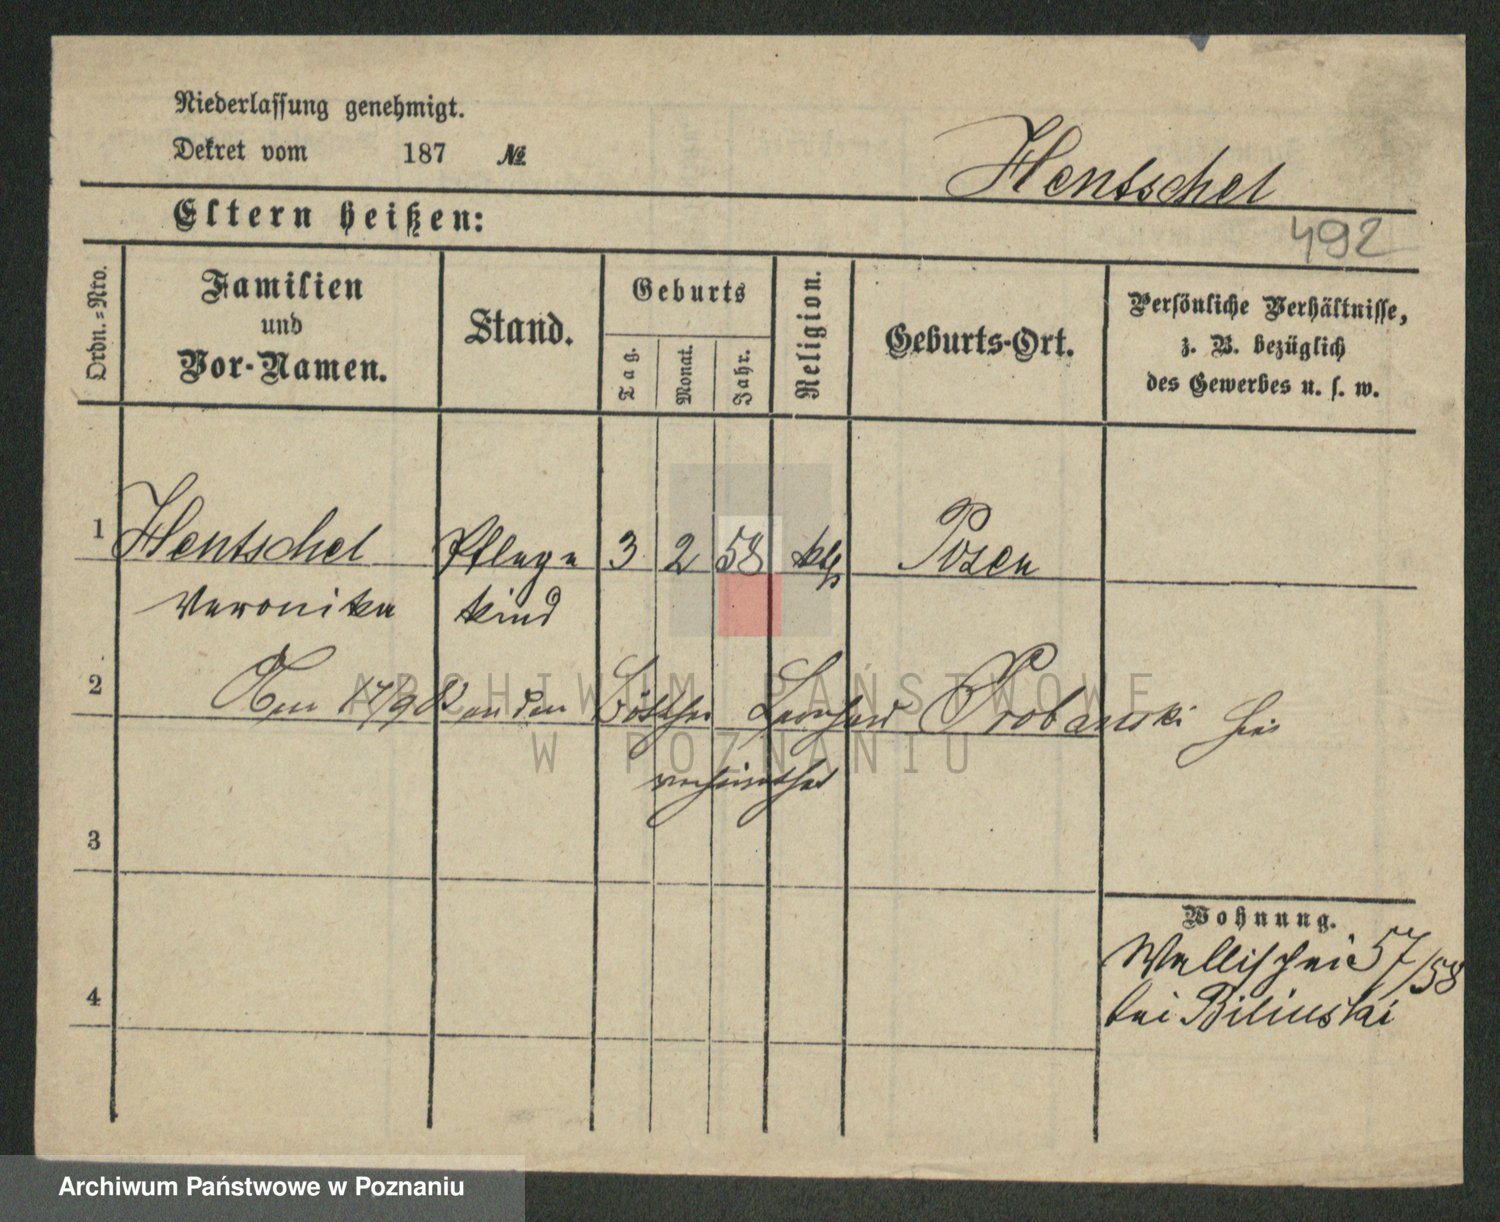 Niederlassung genehmigt.
Dekret vom 187 №
Hentschel
Eltern heißen:
492
Ordn.=Nro.
Familien und Vor-Namen.
Stand.
Geburts
Tag.
Monat.
Jahr.
Religion.
Geburts-Ort.
Persönliche Verhältnisse, z. B. bezüglich des Gewerbes u. s. w.
1 Hentschel Pflege 3 2 58 kth Posen
Veronika kind
2 Am 17/9 82 an den Böttcher Leonhard Probanski hier
verheirathet
3
Wohnung.
Wallischei 57/58
4
bei Bilinski
ARCHIWUM PAŃSTWOWE
W POZNANIU
Archiwum Państwowe w Poznaniu